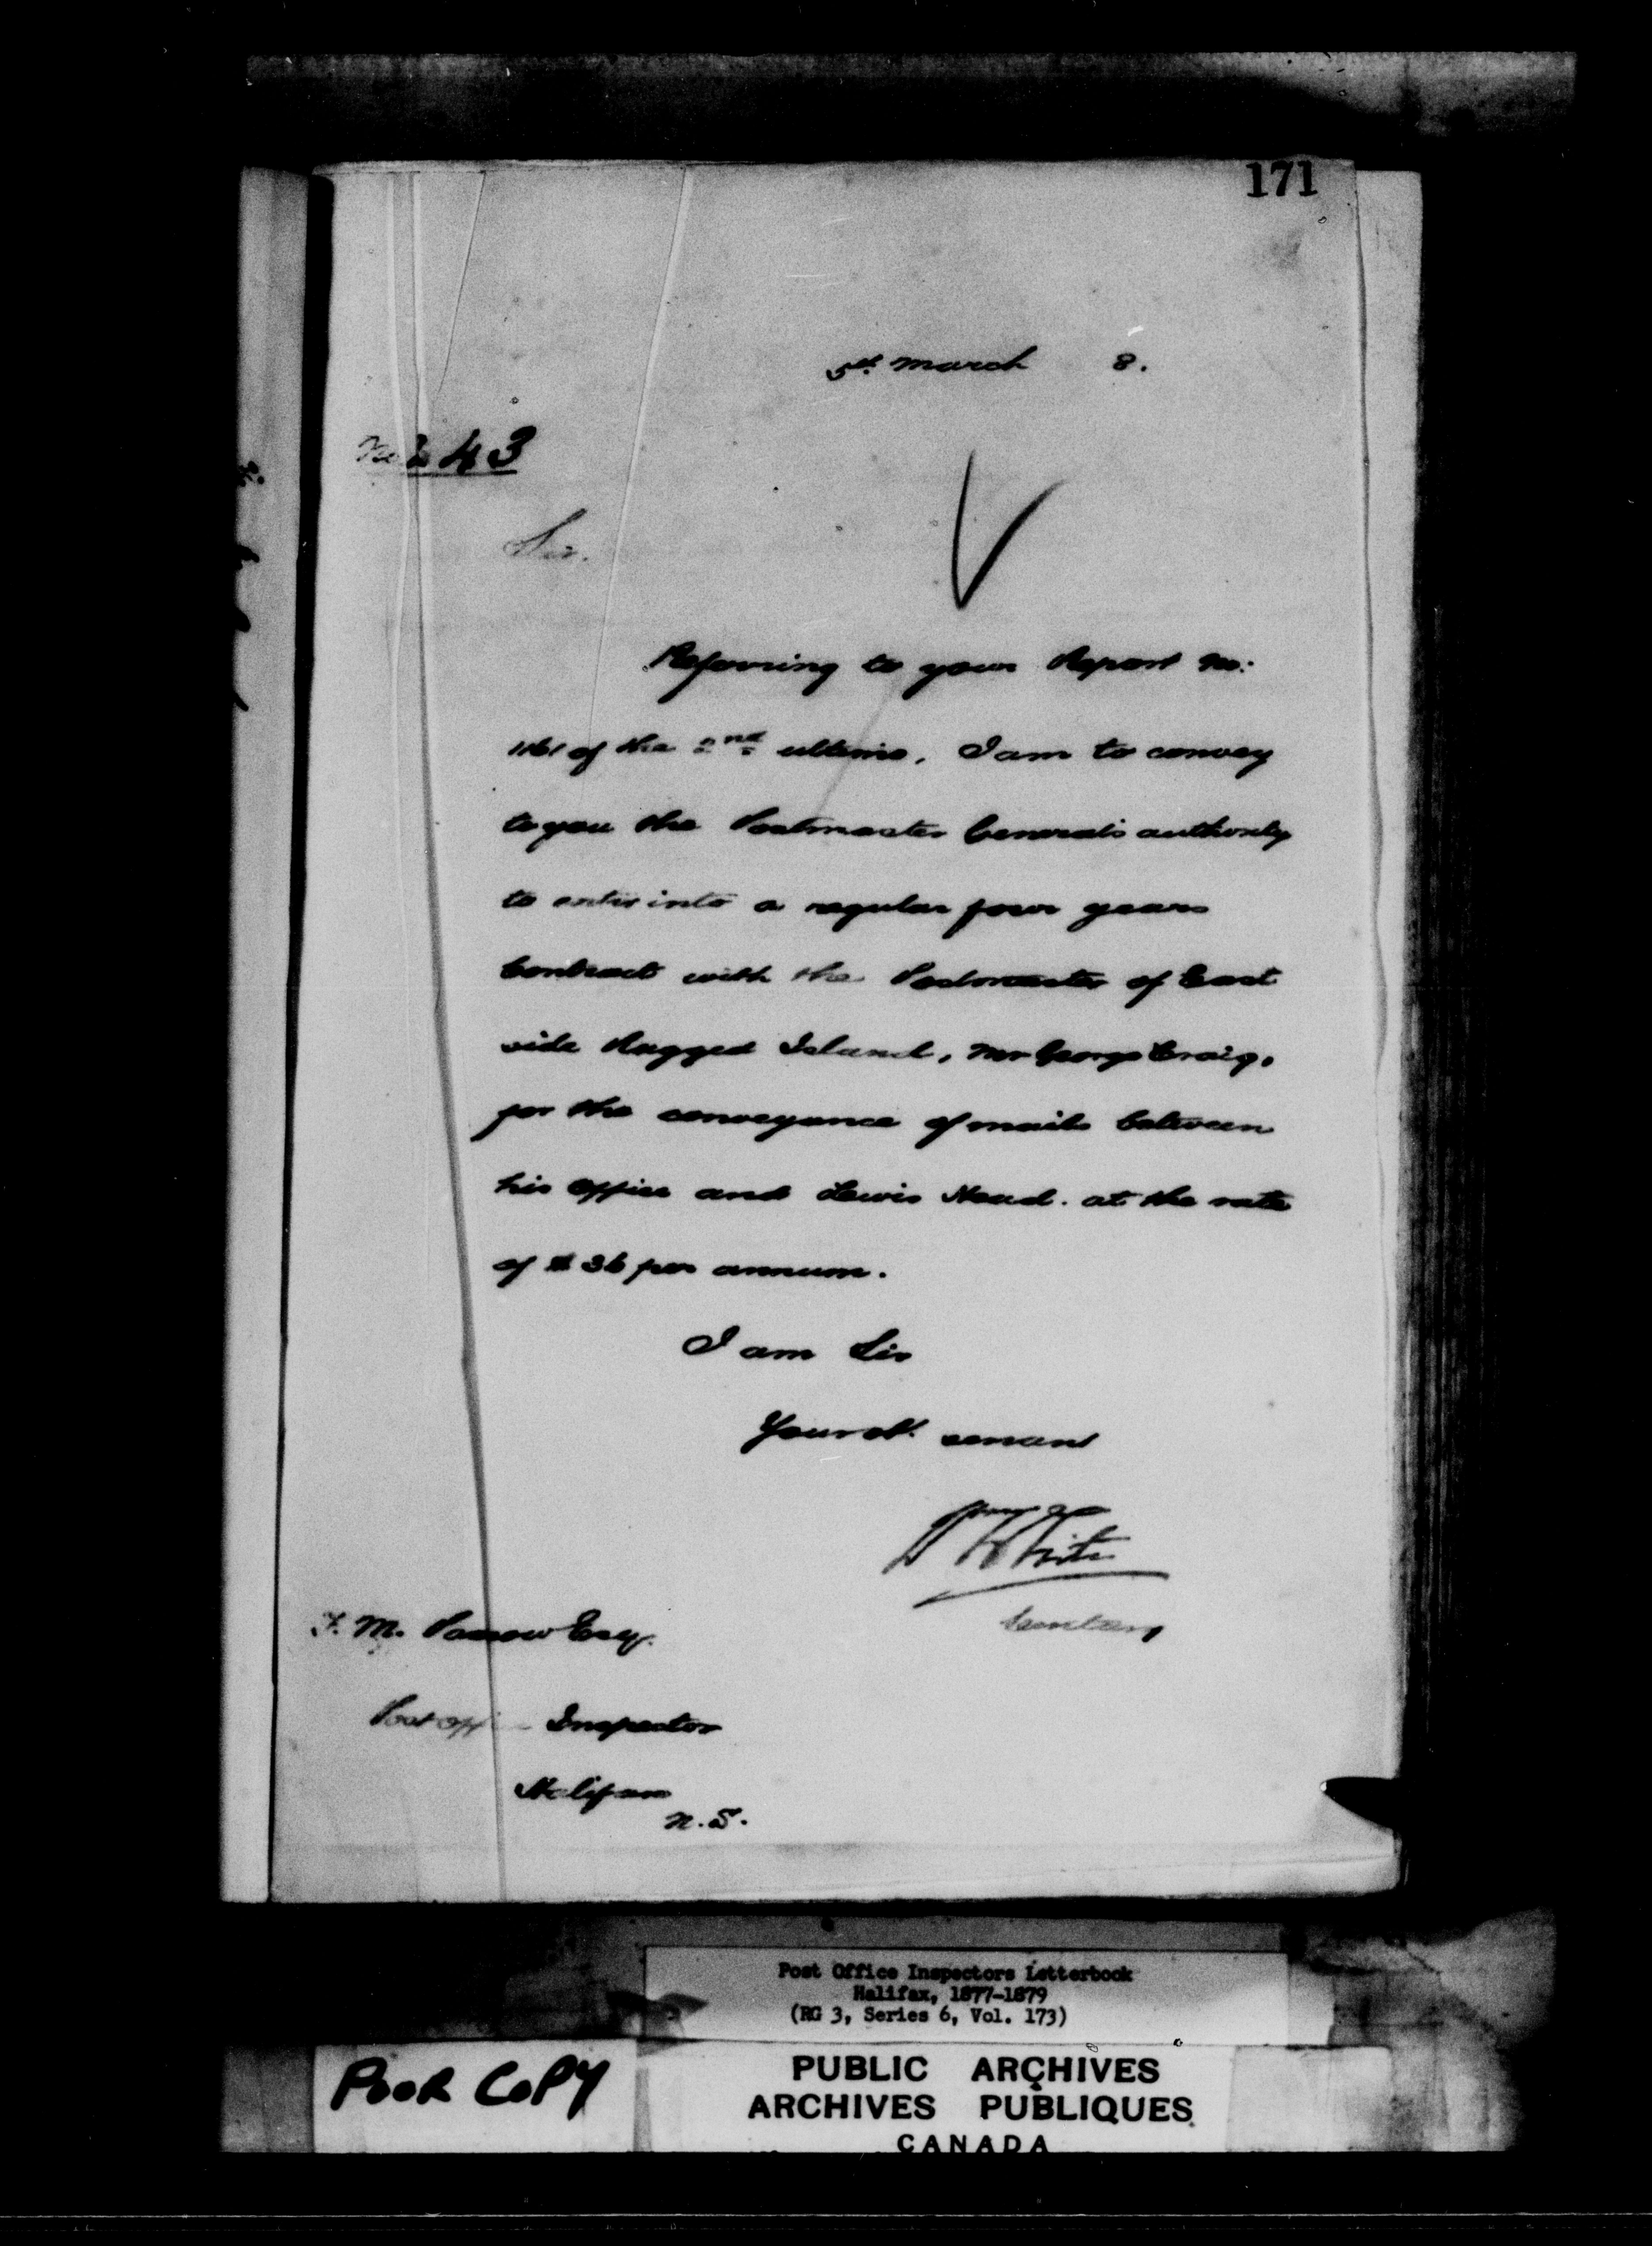 171
5th. March 8.
No 243
Sir.
Referring to your Report No:
1161 of the 2nd ultimo, I am to convey
to you the Postmaster General's authority
to enter into a regular four years
Contract with the Postmaster of East
side Ragged Island, Mr George Craig,
for the conveyance of mails between
his office and Lewis Head. at the rate
of $36 per annum.
I am Sir
Your obt. servant
White
Secretary
F. M. Passow Esq.
Post Office Inspector
Halifax
N. S.
Post Office Inspectors Letterbook
Halifax, 1877-1879
(RG 3, Series 6, Vol. 173)
POOR COPY
PUBLIC ARCHIVES
ARCHIVES PUBLIQUES
CANADA